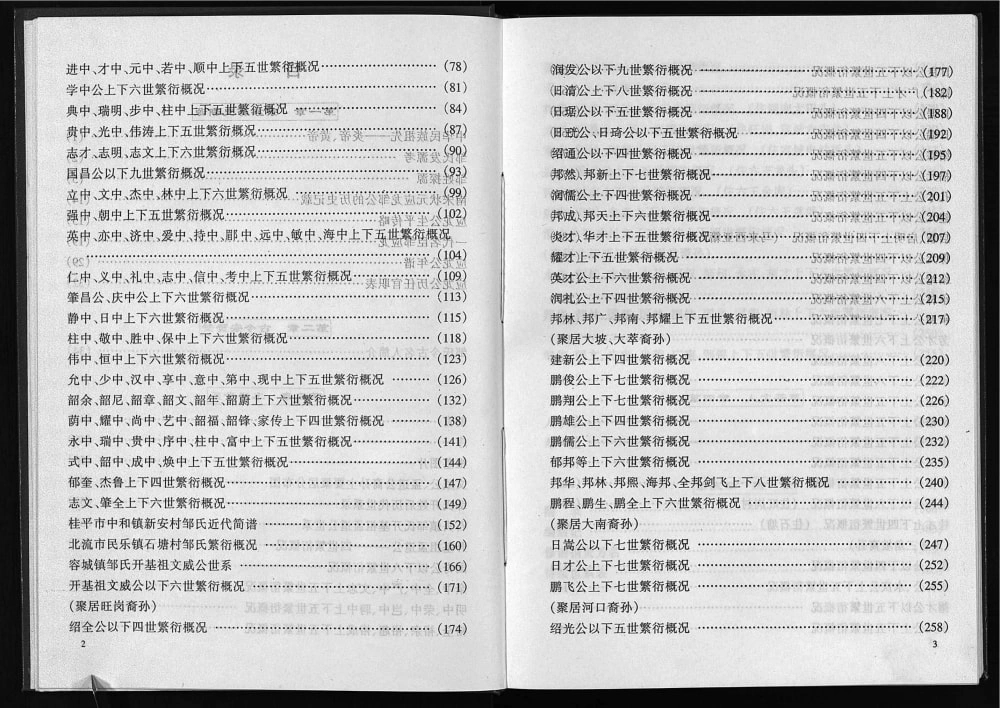 进中、才中、元中、若中、顺中上下五世繁衍概况……………(78)
学中公上下六世繁衍概况……………(81)
典中、瑞明、步中、柱中上下五世繁衍概况……………(84)
贵中、光中、伟涛上下五世繁衍概况……………(87)
志才、志明、志文上下六世繁衍概况……………(90)
国昌公以下九世繁衍概况……………(93)
立中、文中、杰中、林中上下六世繁衍概况……………(99)
强中、朝中上下五世繁衍概况……………(102)
英中、亦中、济中、爱中、持中、郡中、远中、敏中、海中上下五世繁衍概况
……………(104)
仁中、义中、礼中、志中、信中、考中上下五世繁衍概况……………(109)
肇昌公、庆中公上下六世繁衍概况……………(113)
静中、日中上下六世繁衍概况……………(115)
柱中、敬中、胜中、保中上下六世繁衍概况……………(118)
伟中、恒中上下六世繁衍概况……………(123)
允中、少中、汉中、享中、意中、第中、现中上下五世繁衍概况……………(126)
韶余、韶尼、韶章、韶文、韶年、韶蔚上下六世繁衍概况……………(132)
荫中、耀中、尚中、艺中、韶福、韶锋、家传上下四世繁衍概况……………(138)
永中、瑞中、贵中、序中、柱中、富中上下五世繁衍概况……………(141)
式中、韶中、成中、焕中上下五世繁衍概况……………(144)
郁奎、杰鲁上下四世繁衍概况……………(147)
志文、肇全上下六世繁衍概况……………(149)
桂平市中和镇新安村邹氏近代简谱……………(152)
北流市民乐镇石塘村邹氏繁衍概况……………(160)
容城镇邹氏开基祖文威公世系……………(166)
开基祖文威公以下六世繁衍概况……………(171)
(聚居旺岗裔孙)
绍全公以下四世繁衍概况……………(174)
2
润发公以下九世繁衍概况……………(177)
日清公上下八世繁衍概况……………(182)
日琚公以下五世繁衍概况……………(188)
日珖公、日琦公以下五世繁衍概况……………(192)
绍通公以下四世繁衍概况……………(195)
邦然、邦新上下七世繁衍概况……………(197)
润儒公上下四世繁衍概况……………(201)
邦成、邦天上下六世繁衍概况……………(204)
炎才、华才上下五世繁衍概况……………(207)
耀才上下五世繁衍概况……………(209)
英才公上下六世繁衍概况……………(212)
润礼公上下四世繁衍概况……………(215)
邦林、邦广、邦南、邦耀上下五世繁衍概况……………(217)
(聚居大坡、大萃裔孙)
建新公上下四世繁衍概况……………(220)
鹏俊公上下七世繁衍概况……………(222)
鹏翔公上下七世繁衍概况……………(226)
鹏雄公上下四世繁衍概况……………(230)
鹏儒公上下六世繁衍概况……………(232)
郁邦等上下六世繁衍概况……………(235)
邦华、邦林、邦熙、海邦、全邦剑飞上下八世繁衍概况……………(240)
鹏程、鹏生、鹏全上下六世繁衍概况……………(244)
(聚居大南裔孙)
日嵩公以下七世繁衍概况……………(247)
日才公上下七世繁衍概况……………(252)
鹏飞公上下七世繁衍概况……………(255)
(聚居河口裔孙)
绍光公以下五世繁衍概况……………(258)
3